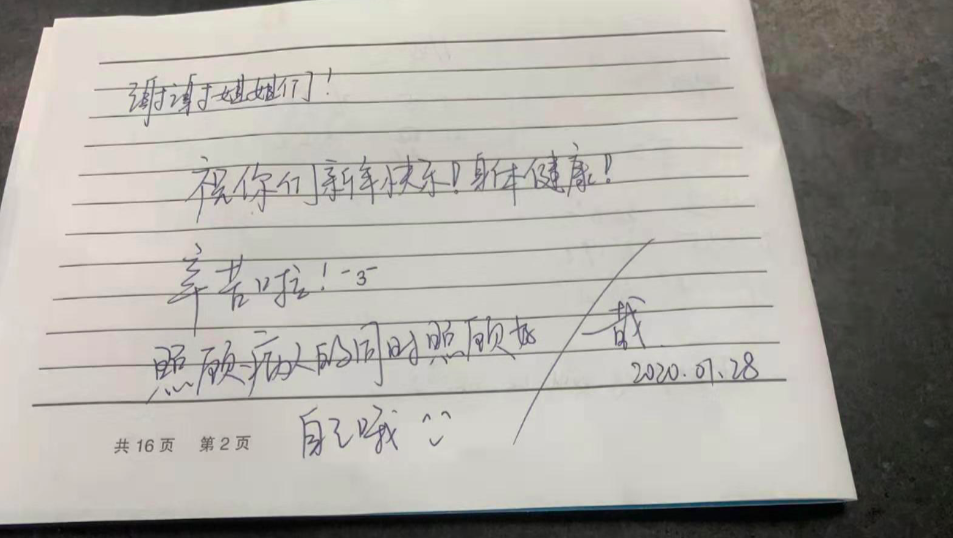 谢谢姐姐们！
祝你们新年快乐！身体健康！
辛苦啦！-3-
照顾病人的同时照顾好
自己哦
2020.01.28
共 16 页 第 2 页